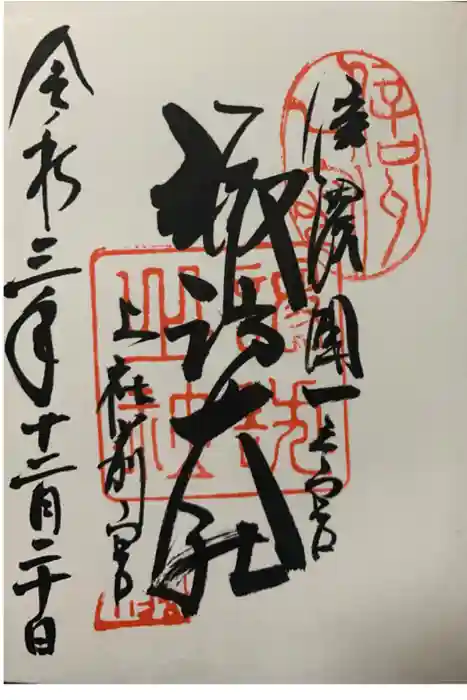 信濃國一之宮
諏訪大社
上社前宮
令和三年十二月二十日